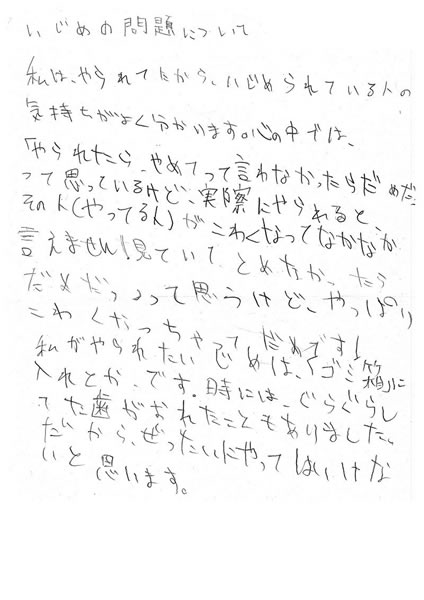 いじめの問題について
私は、やられてたから、いじめられている人の
気持ちがよく分かいます。心の中では、
「やられたら、やめてって言わなかったらだめだ」
って思っているけど、実際にやられると、
その人(やってる人)がこわくなってなかなか
言えません!見ていて、とめなかったら
だめだっ」って思うけど、やっぱり
こわくなっちゃて、だめです!
私がやられたいじめは、「ゴミ箱」に
入れとか、です。時には、ぐらぐらし
てた歯がおれたこともありました。
だから、ぜったいにやってはいけな
いと思います。